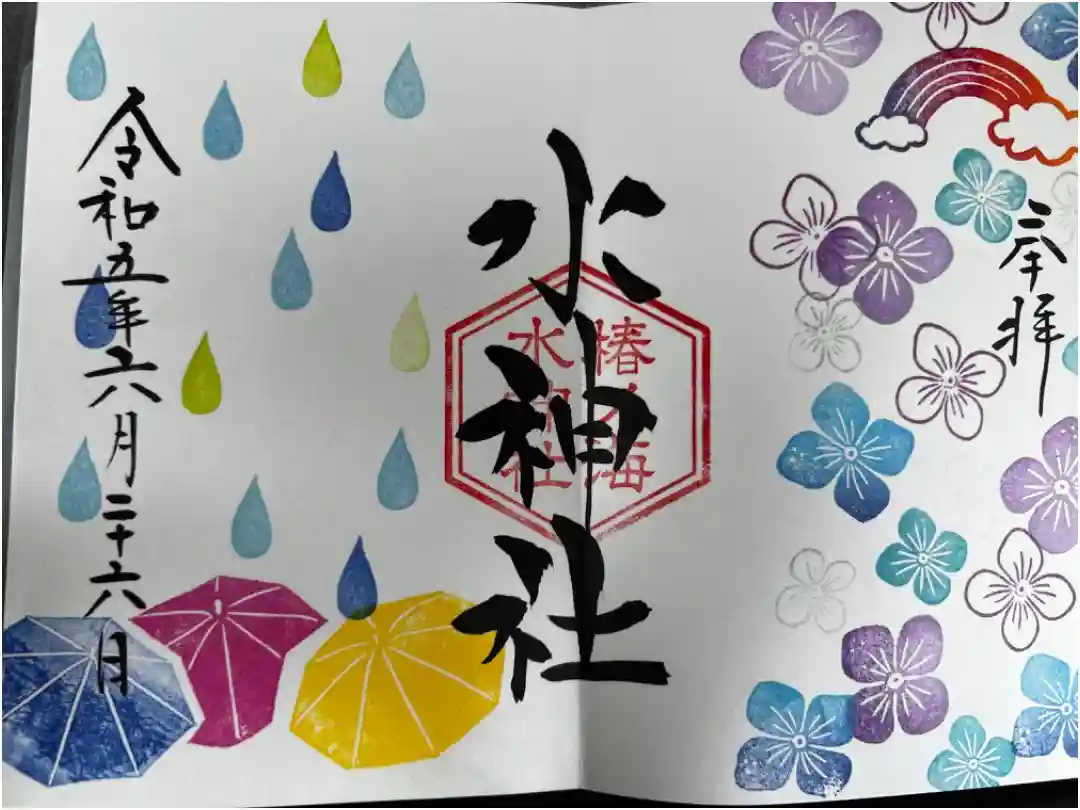 奉拝
水神社
椿ノ海
水神社
令和五年六月二十六日